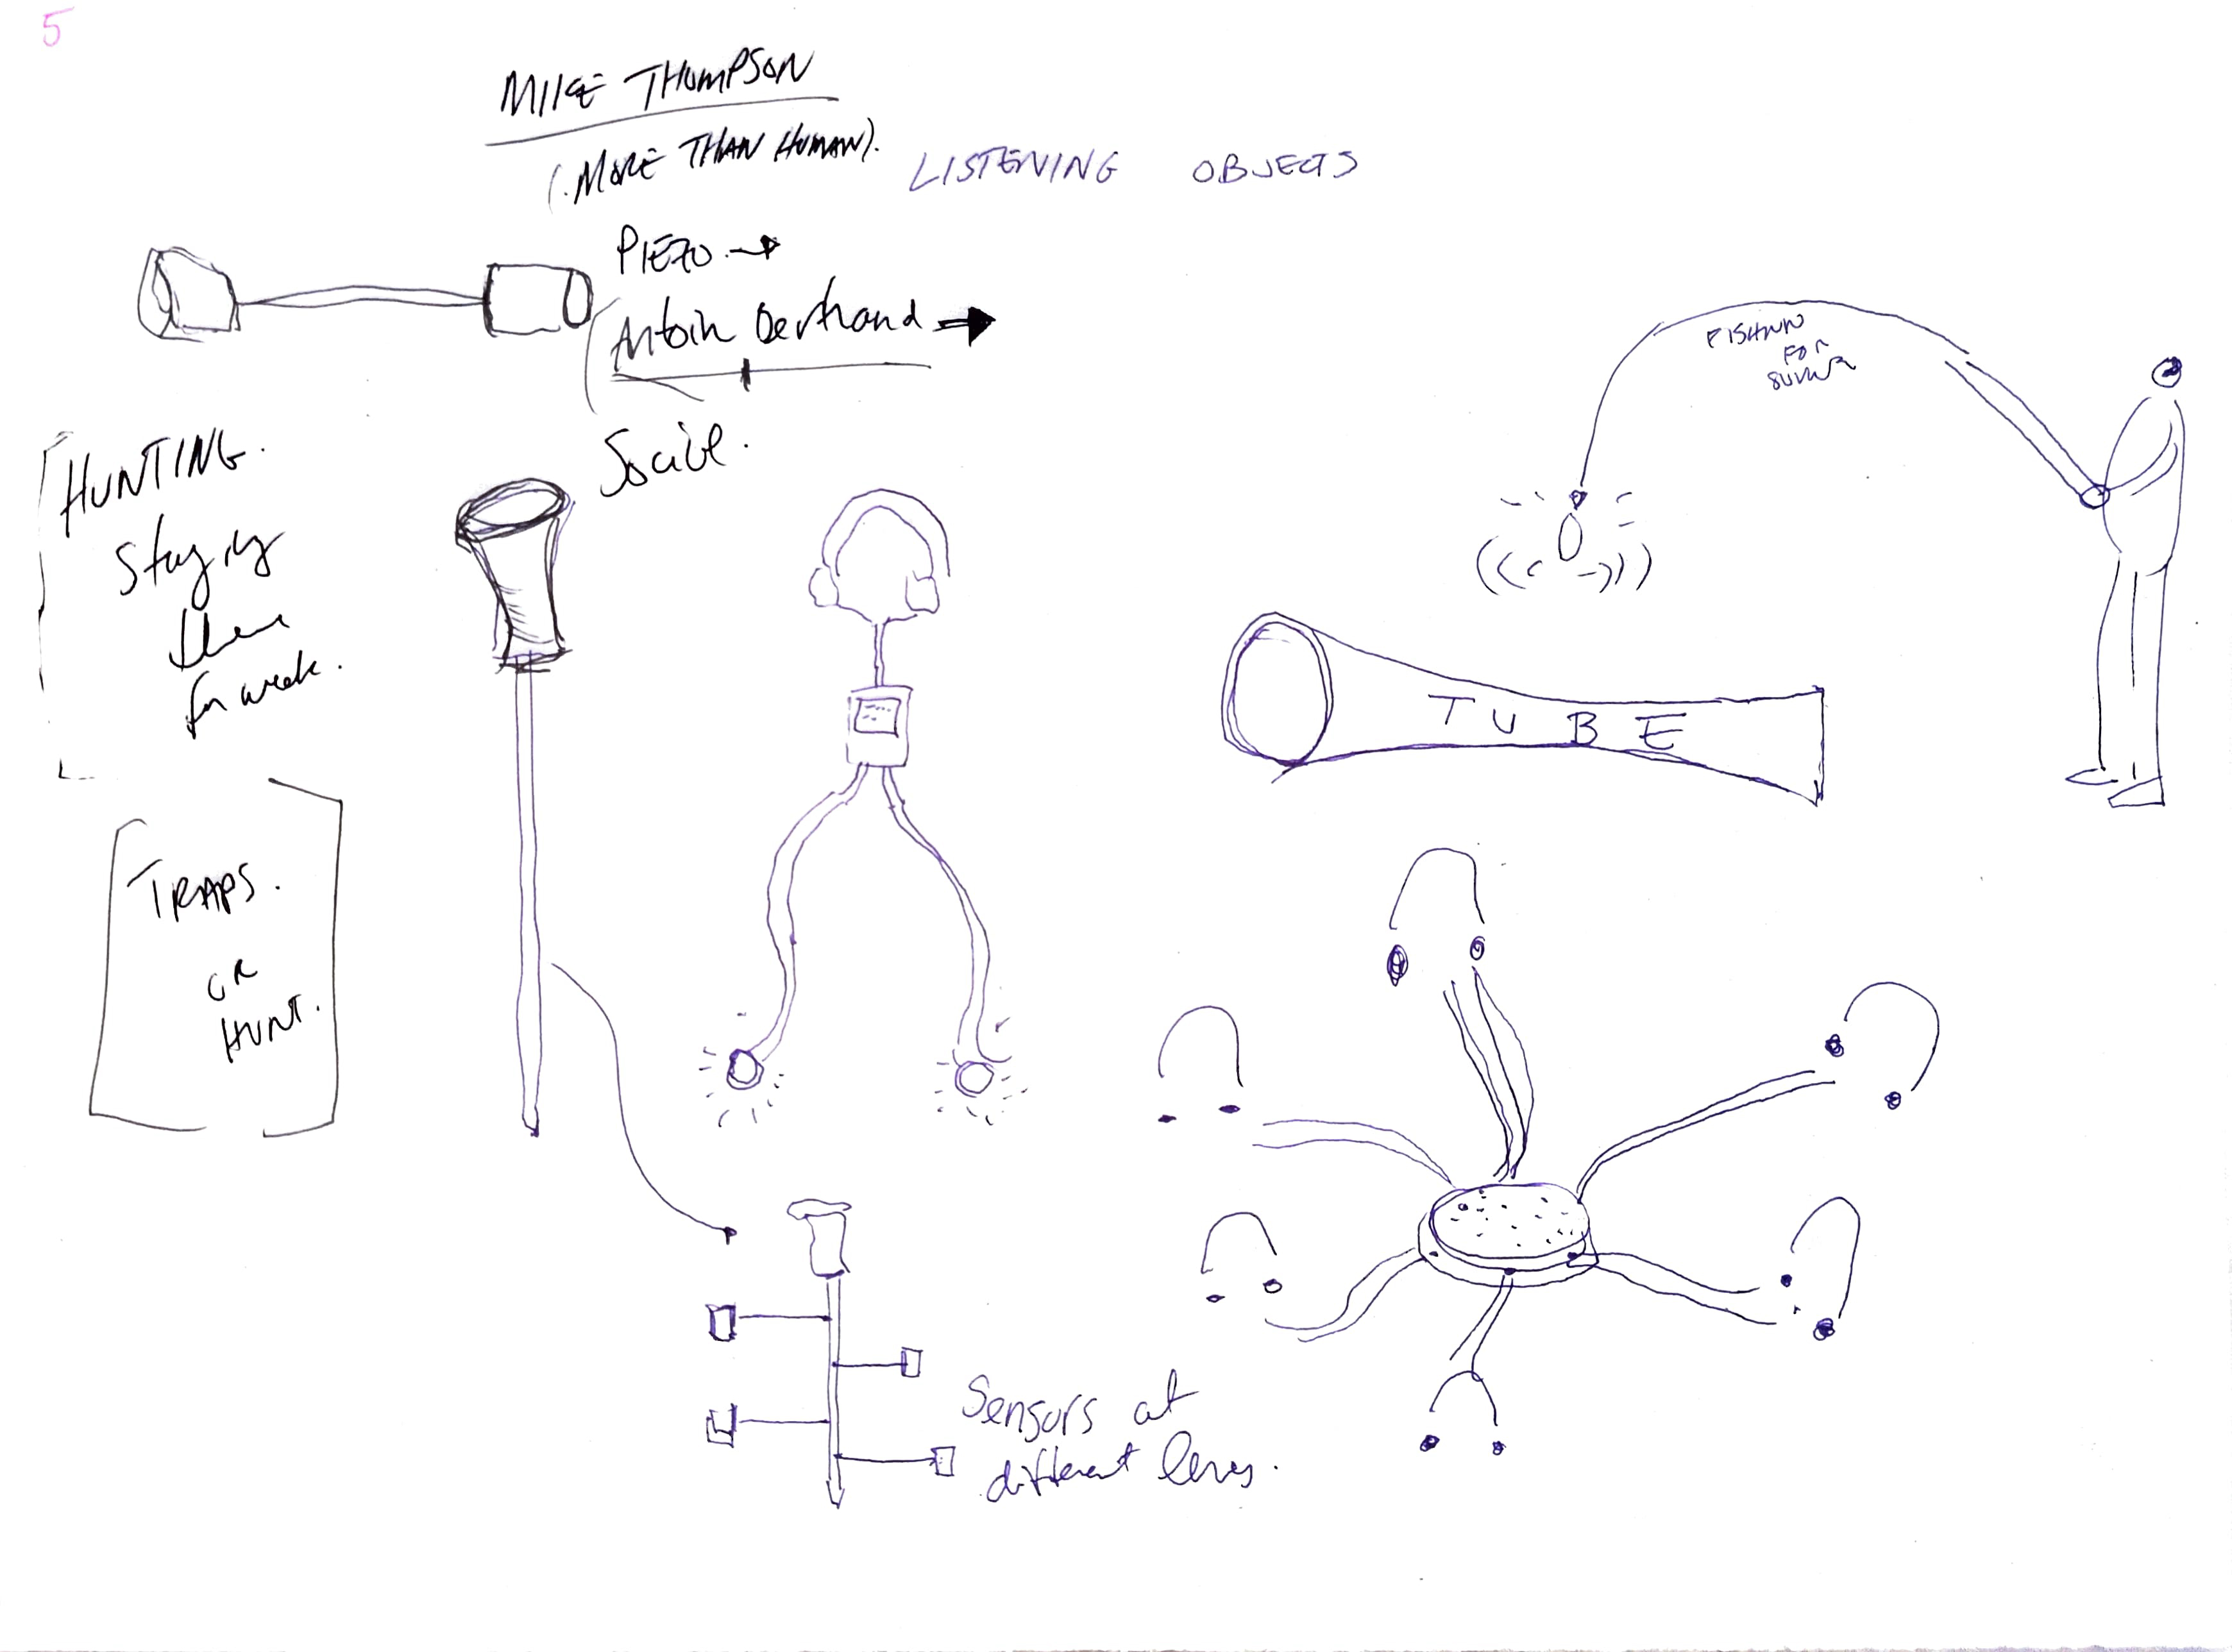 5
MIKE THOMPSON
(MORE THAN HUMAN).
LISTENING OBJECTS
PIEZO →
Antoin Bertrand →
HUNTING.
Staying
there
for week.
TRAPS.
OR
HUNT.
FOR
TUBE
Sensors at
different